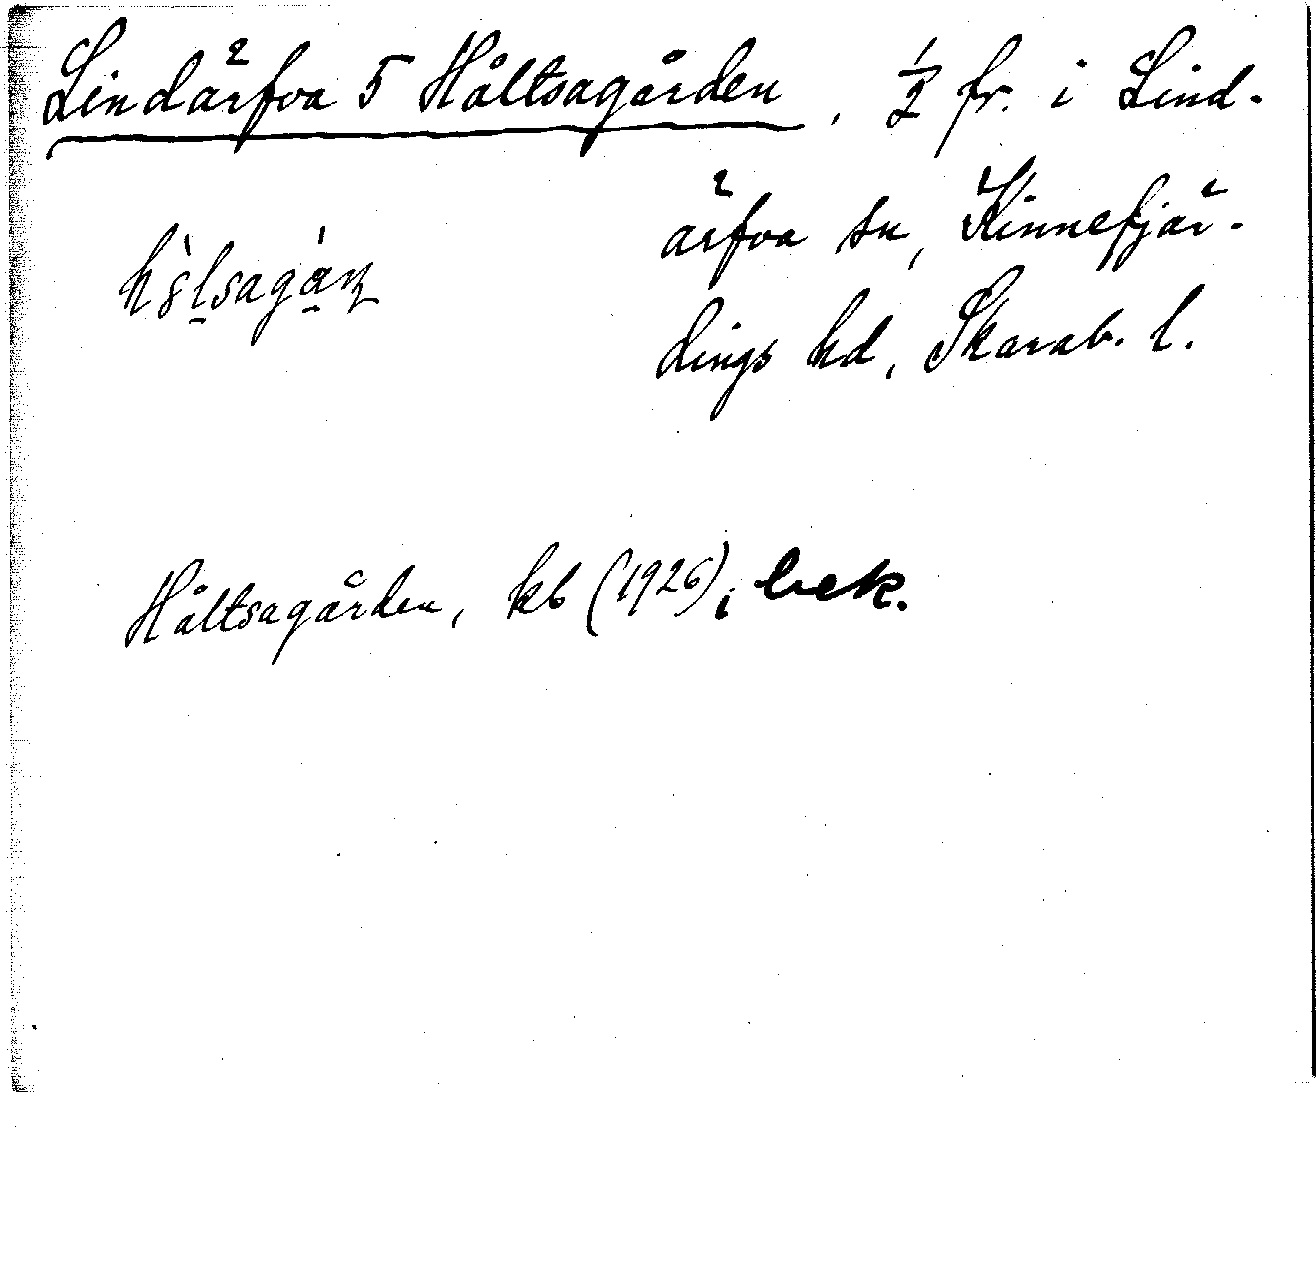 Lindärfva 5 Håltsagården, 1/2 fr. i Lind-
ärfva sn, Kinnefjär-
dings hd, Skarab. l.
Håltsagården, kb (1926), bek.